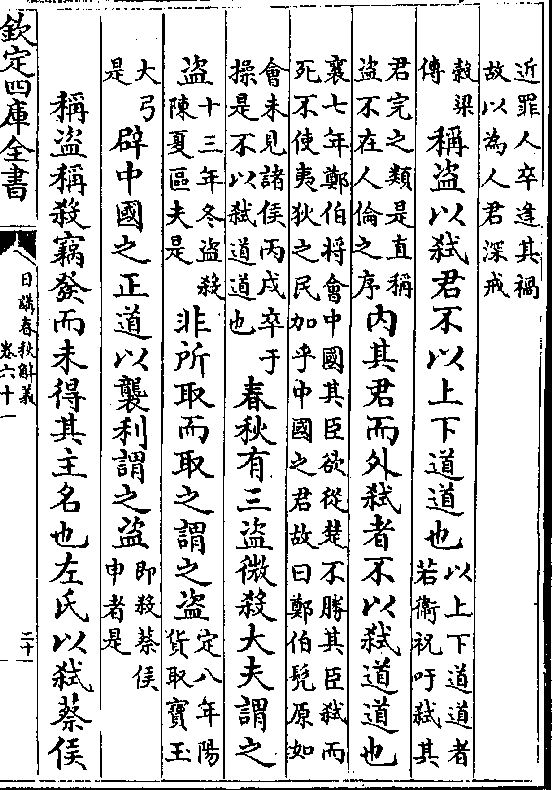 近罪人卒逢其禍
故以為人君深戒
榖梁
傳
稱盜以弒君不以上下道道也
以上下道道者
若衛祝吁弒其
君完之類是直稱
盜不在人倫之序
內其君而外弒者不以弒道道也
襄七年鄭伯將會中國其臣欲從楚不勝其臣弒而
死不使夷狄之民加乎中國之君故曰鄭伯髠原如
會未見諸侯丙戌卒于
操是不以弒道道也
春秋有三盜微殺大夫謂之
盜
十三年冬盜殺
陳夏區夫是
非所取而取之謂之盜
定八年陽
貨取寶玉
大弓
是
辟中國之正道以襲利謂之盜
即殺蔡侯
申者是
稱盜稱殺竊發而未得其主名也左氏以弒蔡侯
欽定四庫全書
日講春秋解義
卷六十一
二十